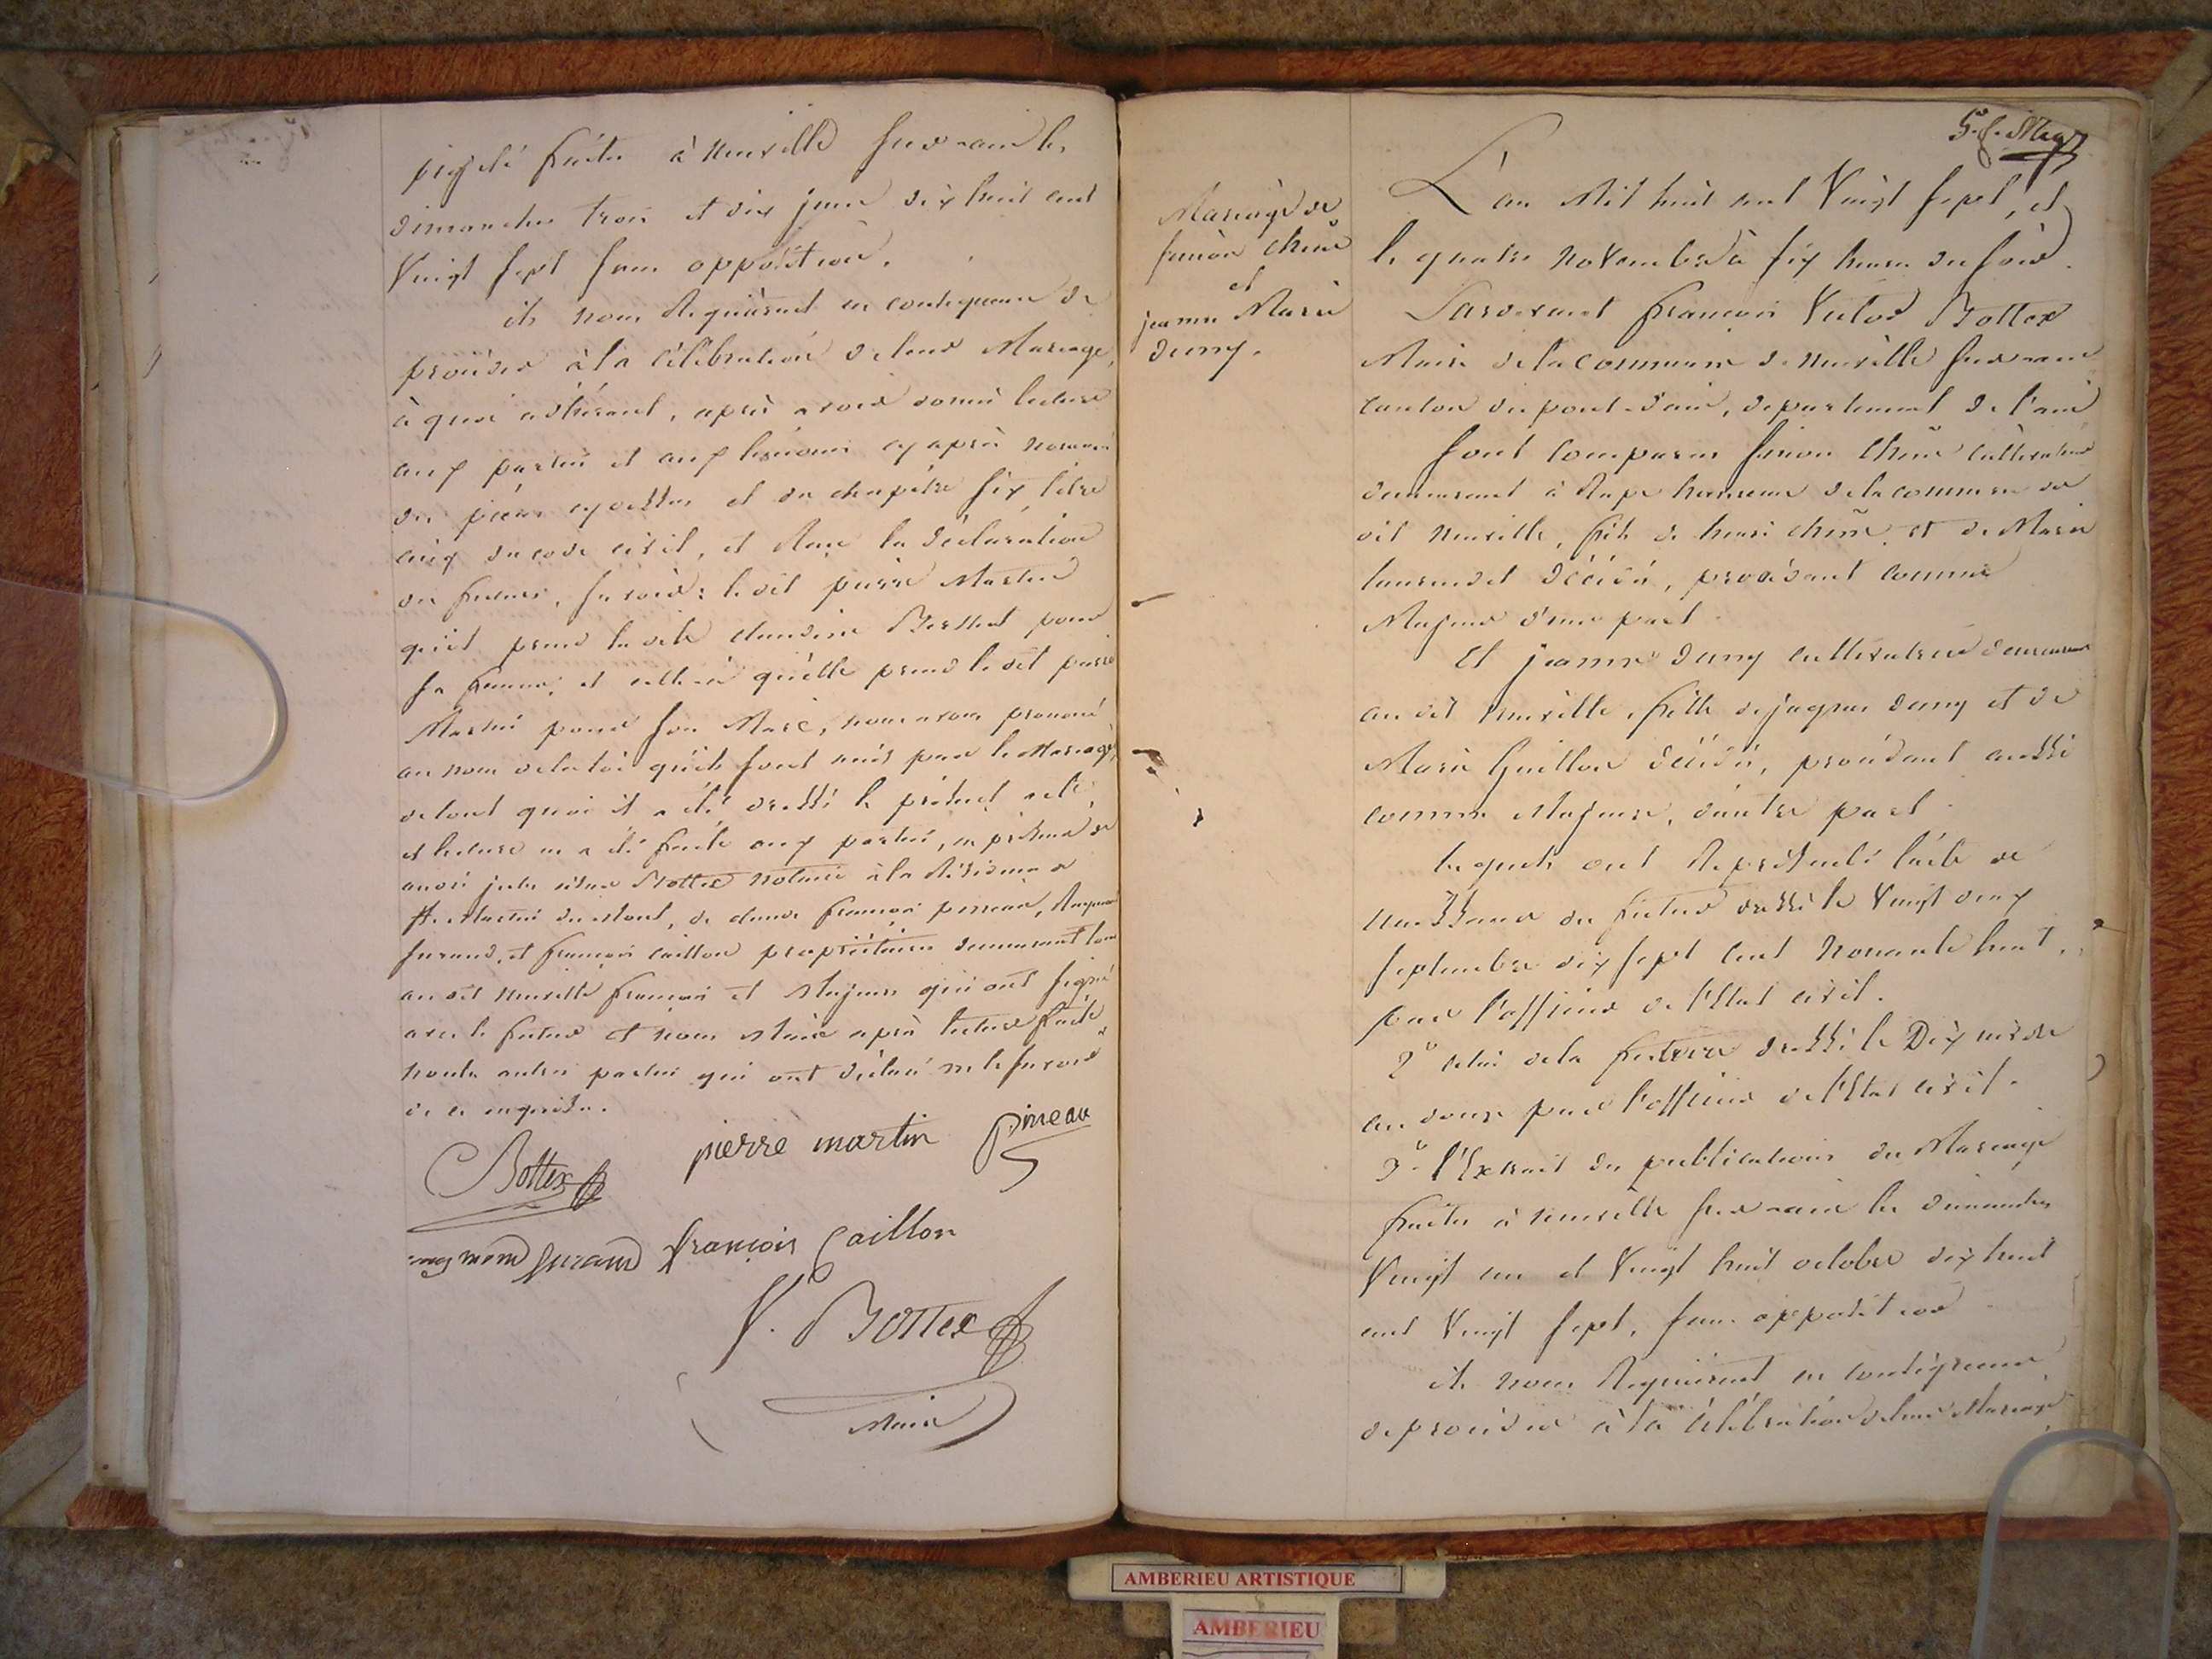 été faites à neuville sur ain les
dimanches trois et dix juin dix huit cent
Vingt sept sans opposition.
ils nous Requièrent en consequence de
procéder à la Célébration de leur Mariage,
à quoi adhérant, après avoir donné lecture
aux parties et aux témoins cy après nommés
des pièces cy dessus et du chapitre six titre
cinq du code civil, et Reçu la déclaration
des futurs, savoir: le dit pierre Martin
qu'il prend la dite claudine pour
sa femme, et celle-ci qu'elle prend le dit pierre
Martin pour son Mari, nous avons prononcé
au nom de la loi qu'ils sont unis par le Mariage,
de tout quoi il a été dressé le présent acte,
et lecture en a été faite aux parties, en présence de
Bottex notaire à la Résidence de
St. Martin du Mont, de claude françois pineau, Raymond
furand, et françois caillon propriétaires demeurant tous
au dit neuville français et Majeurs qui ont signé
avec le futur et nous Maire après lecture faite
non les autres parties qui ont déclaré ne le savoir
de ce enquises.
Bottex pierre martin Pineau
raymond furand françois Caillon
V. Bottex
Maire
5. f.
Mariage de
simon chêne
et
jeanne Marie
damy.
L'an Mil huit cent Vingt sept, et
le quatre novembre à six heures du soir
Pardevant françois Victor Bottex
Maire de la commune de neuville sur ain
canton du pont-d'ain, departement de l'ain
sont comparus simon chêne cultivateur
demeurant à hameau de la commune du
dit neuville, fils de henri chêne et de Marie
décédés, procédant comme
Majeur d'une part.
Et jeanne damy cultivatrice demeurant
au dit neuville, fille de jaques damy et de
Marie Guillon décédés, procédant aussi
comme Majeure, d'autre part.
lesquels ont Représenté l'acte de
naissance du futur dressé le Vingt deux
septembre dix sept cent nonante huit,
par l'officier de l'Etat civil.
2° celui de la future dressé le Dix nivose
an douze par l'officier de l'Etat civil.
3° l'Extrait des publications du Mariage
faites à neuville sur ain les dimanches
Vingt un et Vingt huit octobre dix huit
cent Vingt sept, sans opposition
ils nous Requièrent en conséquence
de procéder à la Célébration de leur Mariage
AMBERIEU ARTISTIQUE
AMBERIEU